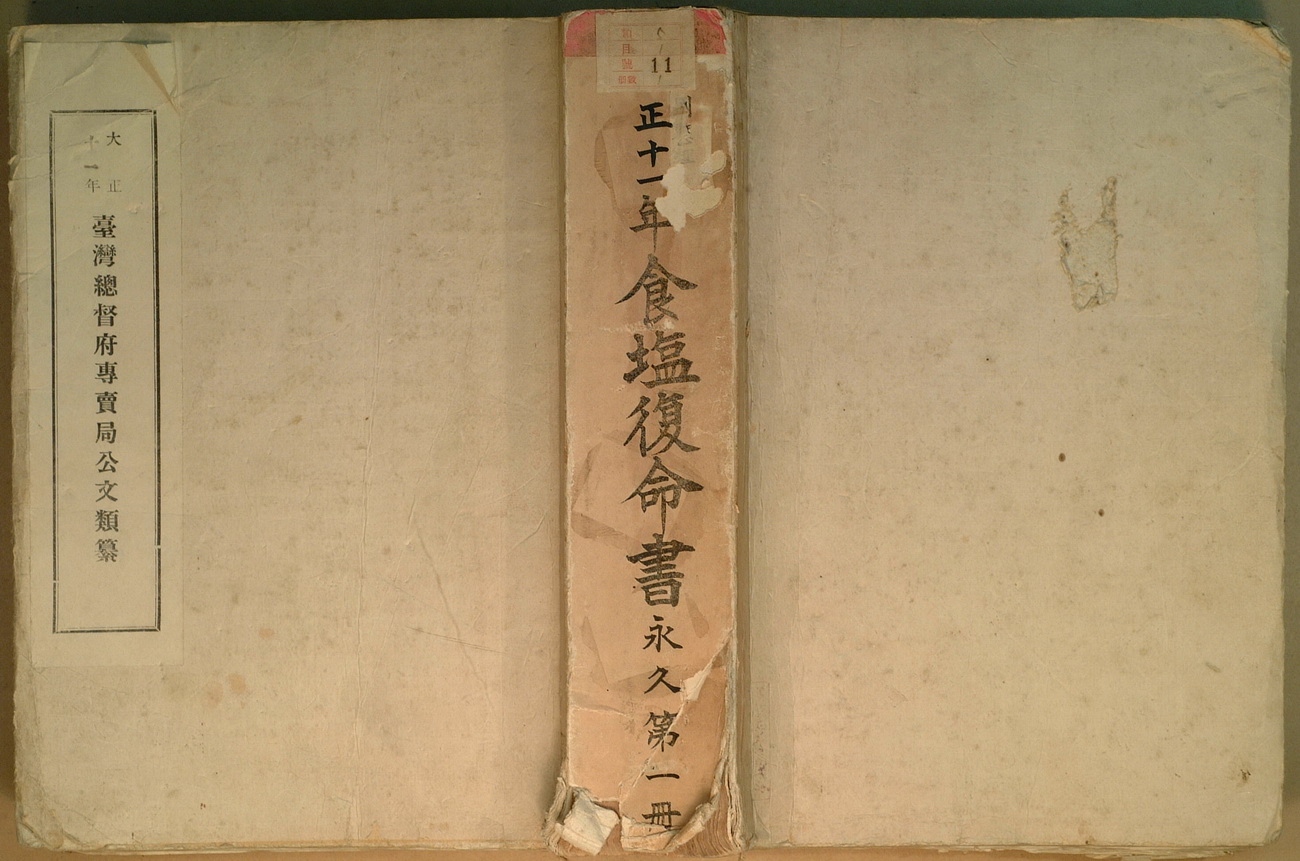 大正
十一年
臺灣總督府專賣局公文類纂
類
目
號
11
正十一年食塩復命書永久第一冊